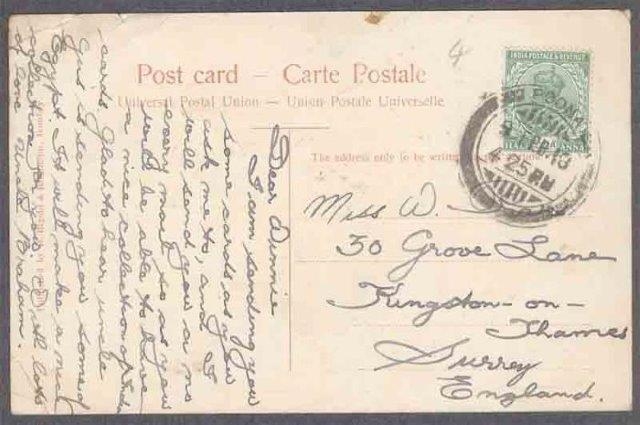 Post card – Carte Postale
Universal Postal Union – Union Postale Universelle
The address only to be written
4
INDIA POSTAGE & REVENUE
HALF ANNA
POONA
4 25 PM
Miss W.
30 Grove Lane
Kingston-on-
Thames
Surrey
England.
Dear Winnie
I am sending you
some cards as you
ask me to, and I
will send you a
every mail so as you
will be able to have
a nice collection of
cards Glad to hear uncle
Gus is sending you some of
Egypt It will make a nice
collection
of love Uncle Graham.